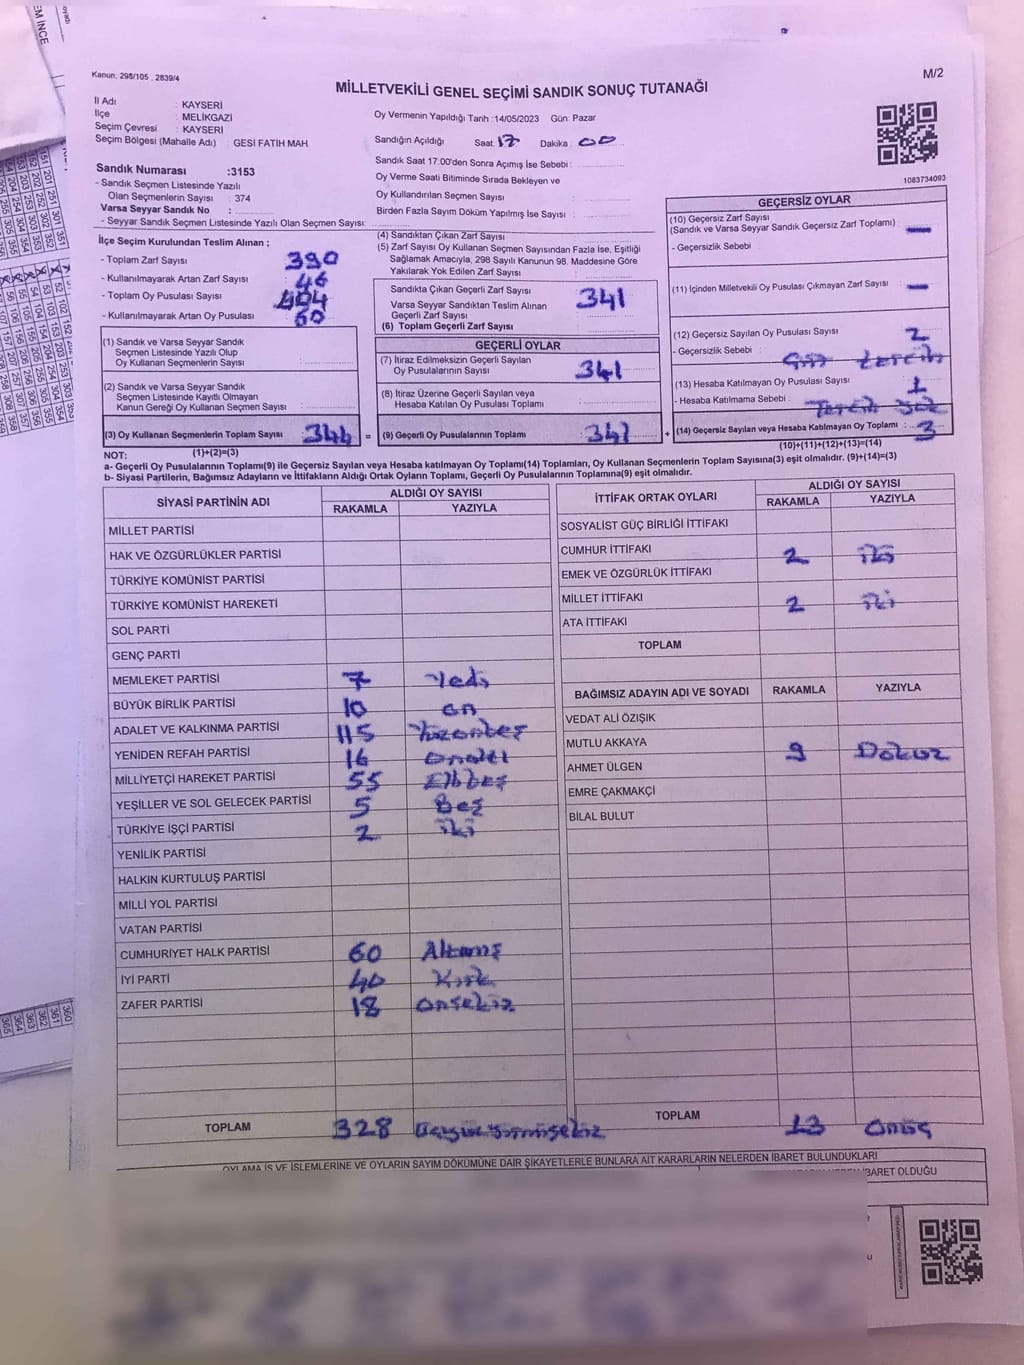 Kanun; 298/105 , 2839/4
M/2
MİLLETVEKİLİ GENEL SEÇİMİ SANDIK SONUÇ TUTANAĞI
İl Adı : KAYSERİ
İlçe : MELİKGAZİ
Seçim Çevresi : KAYSERİ
Seçim Bölgesi (Mahalle Adı) : GESİ FATİH MAH
Sandık Numarası :3153
- Sandık Seçmen Listesinde Yazılı
Olan Seçmenlerin Sayısı : 374
Varsa Seyyar Sandık No :
- Seyyar Sandık Seçmen Listesinde Yazılı Olan Seçmen Sayısı:
Oy Vermenin Yapıldığı Tarih :14/05/2023 Gün: Pazar
Sandığın Açıldığı Saat: 17 Dakika: 00
Sandık Saat 17.00'den Sonra Açımış İse Sebebi :
Oy Verme Saati Bitiminde Sırada Bekleyen ve
Oy Kullandırılan Seçmen Sayısı :
Birden Fazla Sayım Döküm Yapılmış İse Sayısı :
1083734093
İlçe Seçim Kurulundan Teslim Alınan ;
- Toplam Zarf Sayısı : 390
- Kullanılmayarak Artan Zarf Sayısı : 46
- Toplam Oy Pusulası Sayısı : 404
- Kullanılmayarak Artan Oy Pusulası : 60
(1) Sandık ve Varsa Seyyar Sandık
Seçmen Listesinde Yazılı Olup
Oy Kullanan Seçmenlerin Sayısı :
(2) Sandık ve Varsa Seyyar Sandık
Seçmen Listesinde Kayıtlı Olmayan
Kanun Gereği Oy Kullanan Seçmen Sayısı :
(3) Oy Kullanan Seçmenlerin Toplam Sayısı : 344 =
(1)+(2)=(3)
(4) Sandıktan Çıkan Zarf Sayısı :
(5) Zarf Sayısı Oy Kullanan Seçmen Sayısından Fazla İse, Eşitliği
Sağlamak Amacıyla, 298 Sayılı Kanunun 98. Maddesine Göre
Yakılarak Yok Edilen Zarf Sayısı :
Sandıkta Çıkan Geçerli Zarf Sayısı : 341
Varsa Seyyar Sandıktan Teslim Alınan
Geçerli Zarf Sayısı :
(6) Toplam Geçerli Zarf Sayısı :
GEÇERLİ OYLAR
(7) İtiraz Edilmeksizin Geçerli Sayılan
Oy Pusulalarının Sayısı : 341
(8) İtiraz Üzerine Geçerli Sayılan veya
Hesaba Katılan Oy Pusulası Toplamı :
(9) Geçerli Oy Pusulalarının Toplamı : 341 +
GEÇERSİZ OYLAR
(10) Geçersiz Zarf Sayısı
(Sandık ve Varsa Seyyar Sandık Geçersiz Zarf Toplamı) : —
- Geçersizlik Sebebi :
(11) İçinden Milletvekili Oy Pusulası Çıkmayan Zarf Sayısı : —
(12) Geçersiz Sayılan Oy Pusulası Sayısı : 2
- Geçersizlik Sebebi :
(13) Hesaba Katılmayan Oy Pusulası Sayısı : 1
- Hesaba Katılmama Sebebi : Tercih yok
(14) Geçersiz Sayılan veya Hesaba Katılmayan Oy Toplamı : 3
(10)+(11)+(12)+(13)=(14)
NOT:
a- Geçerli Oy Pusulalarının Toplamı(9) ile Geçersiz Sayılan veya Hesaba katılmayan Oy Toplamı(14) Toplamları, Oy Kullanan Seçmenlerin Toplam Sayısına(3) eşit olmalıdır. (9)+(14)=(3)
b- Siyasi Partilerin, Bağımsız Adayların ve İttifakların Aldığı Ortak Oyların Toplamı, Geçerli Oy Pusulalarının Toplamına(9) eşit olmalıdır.
SİYASİ PARTİNİN ADI ALDIĞI OY SAYISI
RAKAMLA YAZIYLA
MİLLET PARTİSİ
HAK VE ÖZGÜRLÜKLER PARTİSİ
TÜRKİYE KOMÜNİST PARTİSİ
TÜRKİYE KOMÜNİST HAREKETİ
SOL PARTİ
GENÇ PARTİ
MEMLEKET PARTİSİ 7 Yedi
BÜYÜK BİRLİK PARTİSİ 10 on
ADALET VE KALKINMA PARTİSİ 115 Yüzonbeş
YENİDEN REFAH PARTİSİ 16 Onaltı
MİLLİYETÇİ HAREKET PARTİSİ 55 Ellibeş
YEŞİLLER VE SOL GELECEK PARTİSİ 5 Beş
TÜRKİYE İŞÇİ PARTİSİ 2 iki
YENİLİK PARTİSİ
HALKIN KURTULUŞ PARTİSİ
MİLLİ YOL PARTİSİ
VATAN PARTİSİ
CUMHURİYET HALK PARTİSİ 60 Altmış
İYİ PARTİ 40 Kırk
ZAFER PARTİSİ 18 onsekiz
TOPLAM 328 üçyüzyirmisekiz
İTTİFAK ORTAK OYLARI ALDIĞI OY SAYISI
RAKAMLA YAZIYLA
SOSYALİST GÜÇ BİRLİĞİ İTTİFAKI
CUMHUR İTTİFAKI 2 iki
EMEK VE ÖZGÜRLÜK İTTİFAKI
MİLLET İTTİFAKI 2 iki
ATA İTTİFAKI
TOPLAM
BAĞIMSIZ ADAYIN ADI VE SOYADI RAKAMLA YAZIYLA
VEDAT ALİ ÖZIŞIK
MUTLU AKKAYA 9 Dokuz
AHMET ÜLGEN
EMRE ÇAKMAKÇİ
BİLAL BULUT
TOPLAM 13 Onüç
OYLAMA İŞ VE İŞLEMLERİNE VE OYLARIN SAYIM DÖKÜMÜNE DAİR ŞİKAYETLERLE BUNLARA AİT KARARLARIN NELERDEN İBARET BULUNDUKLARI
İBARET OLDUĞU